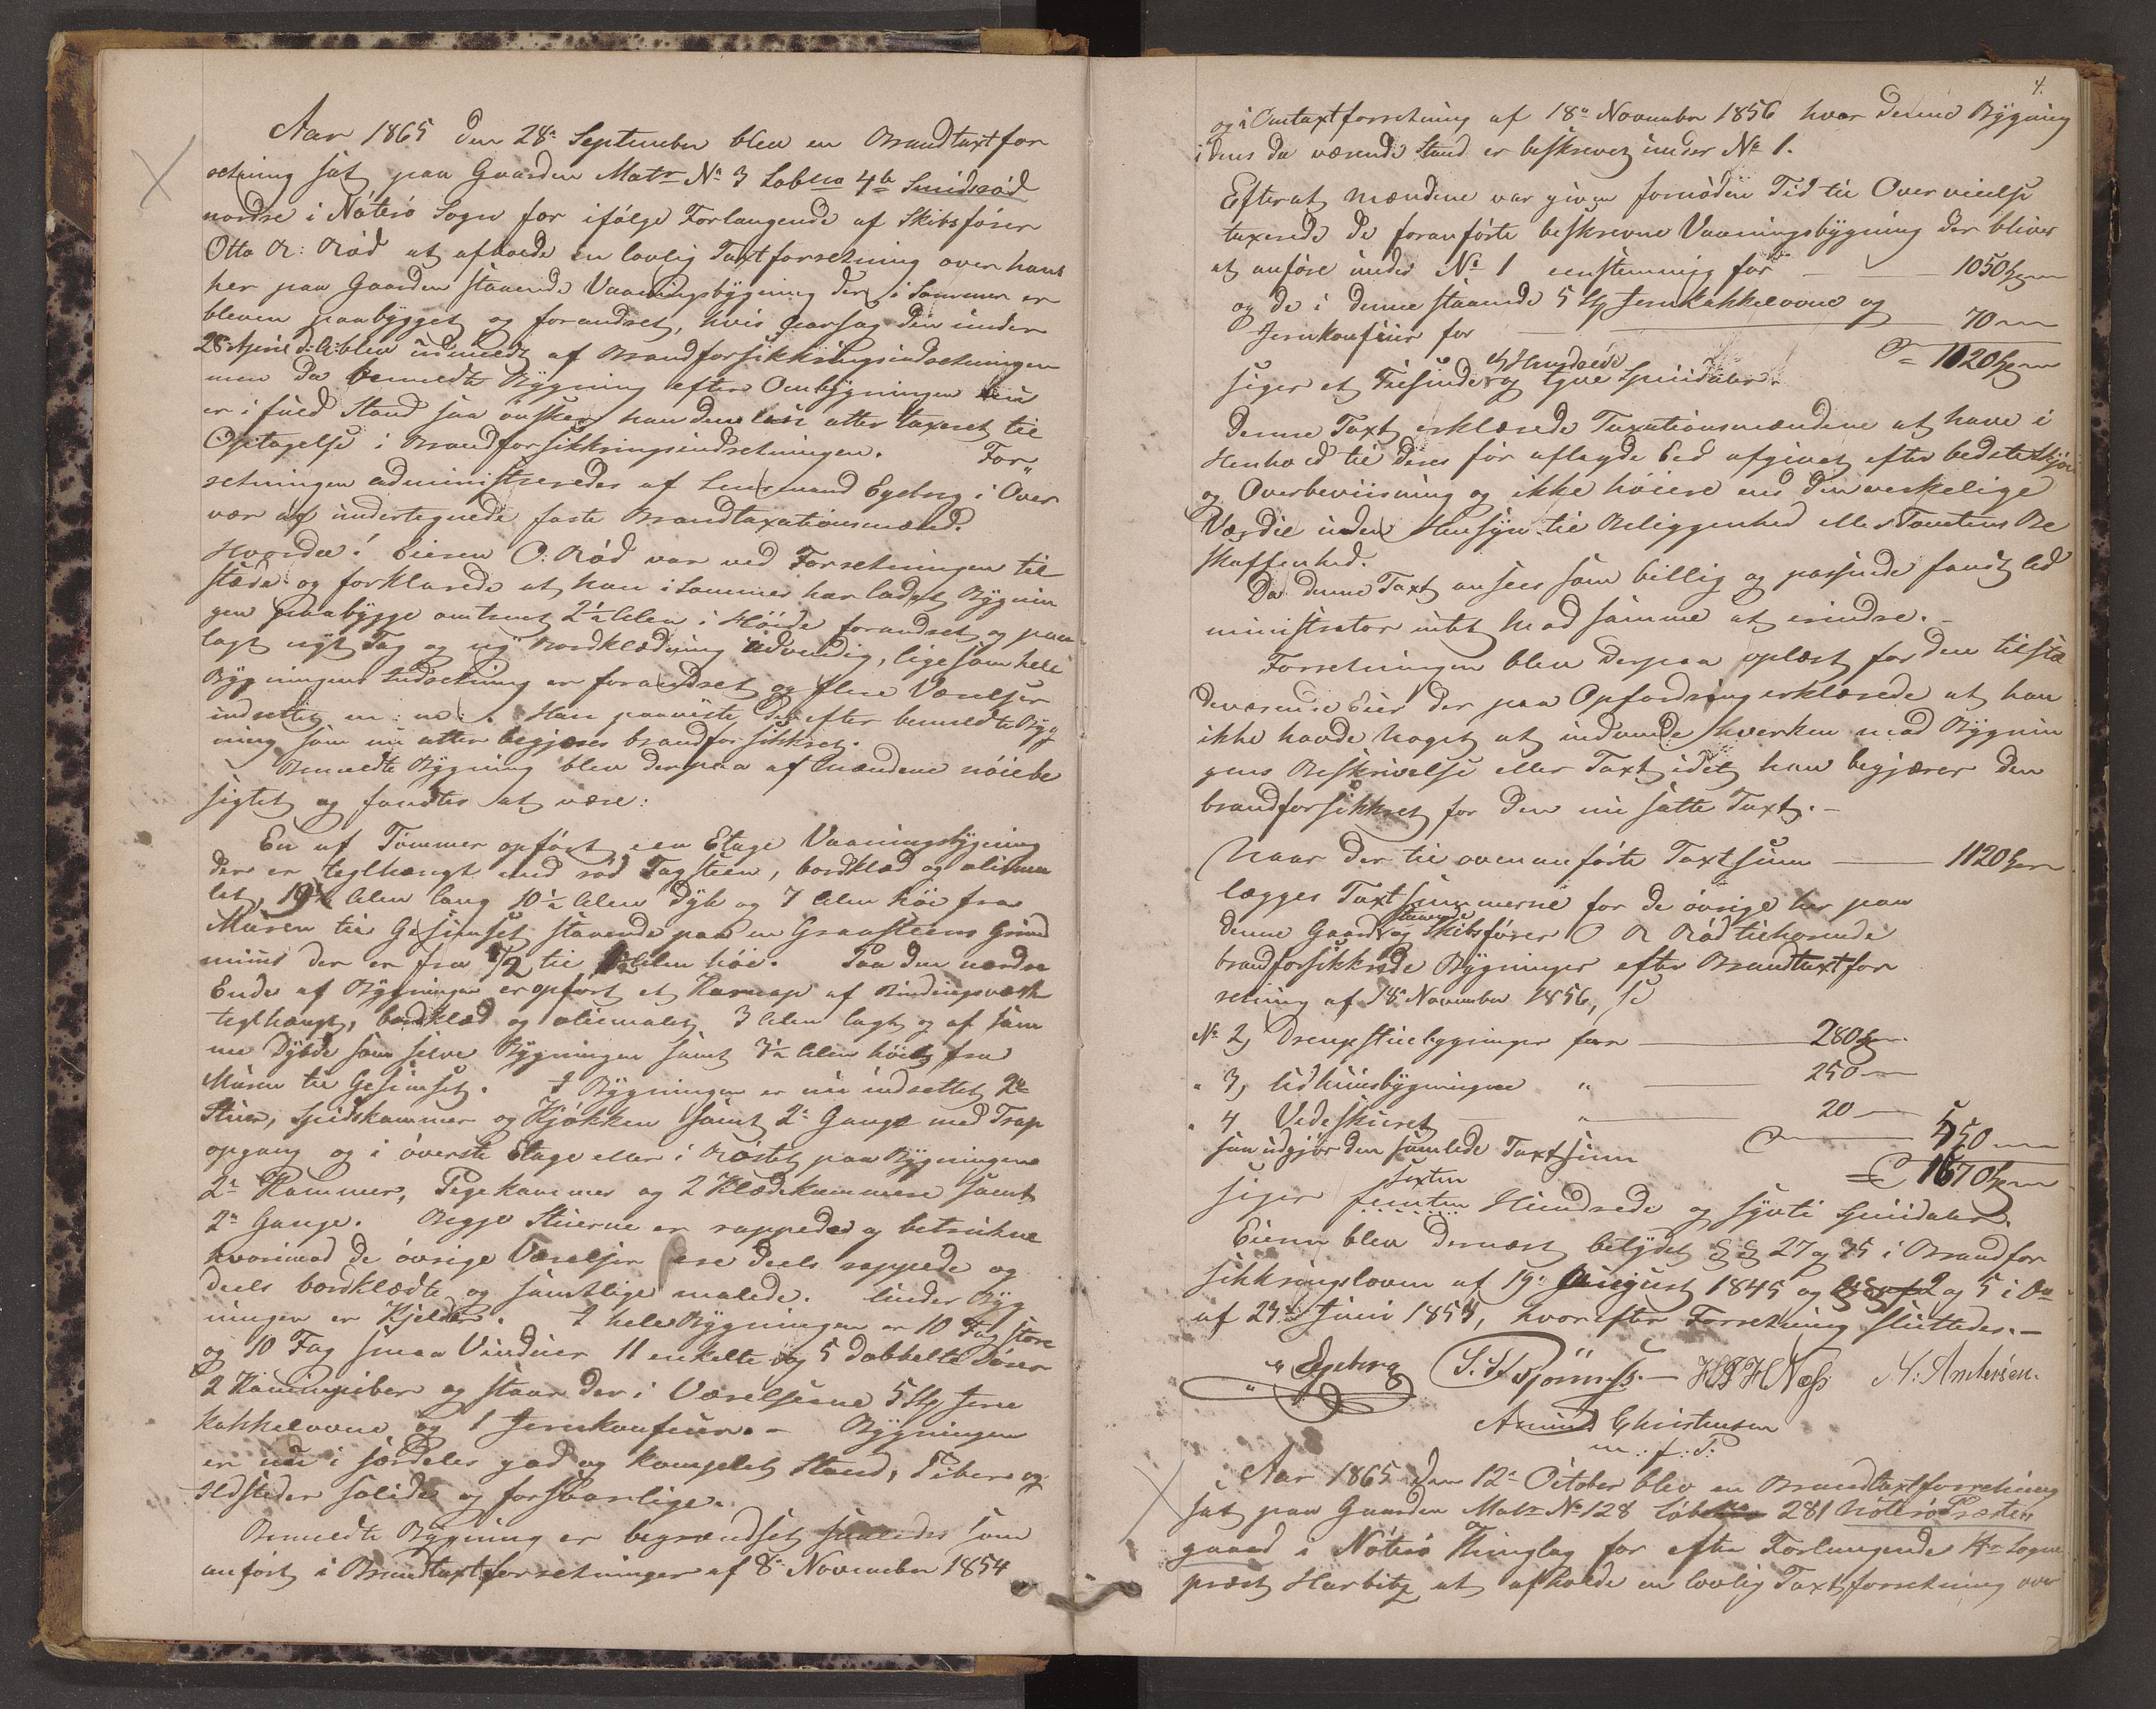 Aar 1865 den 28de September blev en Brandtaxtfor
retning sat paa Gaarden Matr No 3 Lobno 4b Smidsröd
nordre i Nöterö Sogn for ifölge Forlangende af Skibsförer
Otto R: Röd at afholde en lovlig Taxtforretning over hans
her paa Gaarden staaende Vaaningsbygning der i Sommer er
bleven paabygget og forandret, hvis Aarsag den under
28de April d: A: blev udmeldt af Brandforsikkringsindretningen
men da bemeldte Bygning efter Ombygningen nu
er i fuld Stand saa önsker han den atter taxeret til
Optagelse i Brandforsikkringsindretningen. For„
retningen administreredes af Lensmand Egeberg i Over
vær af undertegnede faste Brandtaxationsmænd.
Hvorda! Eieren O: Röd var ved Forretningen til
stæde og forklarede at han i Sommer har ladet Bygnin
gen paabygge omtrent 2½ Alen i Höide forandret og paa
lagt nyt Tag og ny Bordklædning udvendig, ligesom hele
Bygningens Indretning er forandret og flere Værelser
indrettet m: m:. Han paaviste derefter bemeldte Byg
ning som nu atter begjæres brandforsikkret.
Bemeldte Bygning blev derpaa af Mændene nöiebe
sigtet og fandtes at være:
En af Tömmer opfört een Etage Vaaningsbygning
der er teglhængt med röd Tagsteen, bordklæd og oliema
let, 19½ Alen lang 10½ Alen dyb og 7 Alen höi fra
Muren til Gesimset staaende paa en Graasteens Grund
muur der er fra ½ til Alen höi. Paa den nordre
Ende af Bygningen er opfört et Karnap af Bindingsværk
teglhængt, bordklæd og oliemalet 3 Alen langt og af sam
me Dybde som selve Bygningen samt 3½ Alen höit fra
Muren til Gesimset. I Bygningen er nu indrettet 2de
Stuer, Spiskammer og Kjökken samt 2de Gange med Trap
opgang og i överste Etage eller i Röstet paa Bygningen
2de Kammer, Pigekammer og 2 Klædekammere samt
2de Gange. Begge Stuerne er rappede og betrukne
hvorimod de övrige Værelser ere deels rappede og
deels bordklædte og samtlige malede. Under Byg
ningen er Kjelder. I hele Bygningen er 10 Fag store
og 10 Fag smaa Vinduer 11 enkelte og 5 dobbelte Döre
2 Kaminpiber og staar der i Værelserne 5 Stk Jern
kakkelovne og 1 Jernkomfuur. – Bygningen
er nu i særdeles god og komplet Stand, Piber og
Ildsteder solide og forsvarlige.
Bemeldte Bygning er begrændset saaledes som
anfört i Brandtaxtforretninger af 8de November 1854
4.
og i Omtaxtforretning af 18de November 1856 hvor denne Bygning
i dens da værende Stand er beskrevet under No 1.
Efterat Mændene var given fornöden Tid til Overveielse
taxerede de foranförte beskrevne Vaaningsbygning der bliver
at anföre under No 1 eenstemmig for — 1050
og de i denne staaende 5 Stk Jernkakkelovne og
Jernkomfuur for — 70
= 1120
siger et Tusinde et Hundrede og tyve Speciedaler.
Denne Taxt erklærede Taxationsmændene at have i
Henhold til deres för aflagde Eed afgivet efter bedste Skjön
og Overbeviisning og ikke höiere end den verkelige
Værdie uden Hensyn til Beliggenhed eller Tomtens Be
skaffenhed.
Da denne Taxt ansees som billig og passende fandt Ad
ministrator intet mod samme at erindre. –
Forretningen blev derpaa oplæst for den tilstæ
deværende Eier der paa Opfordring erklærede at han
ikke havde noget at indvende hverken mod Bygnin
gens Beskrivelse eller Taxt idet han begjærer den
brandforsikkret for den nu satte Taxt. –
Naar der til ovenanförte Taxtsum — 1120
lægges Taxtsummerne for de övrige her paa
denne Gaard staaende og Skibsförer O R Röd tilhörende
brandforsikkrede Bygninger efter Brandtaxtfor
retning af 18de November 1856,
No 2, Drengestuebygninger for — 280
" 3, Udhuusbygningen " — 250
" 4 Vedeskuret " — 20
550
saa udgjör den samlede Taxtsum
= 1670
siger sexten femten Hundrede og sytti Speciedaler.
Eieren blev dernæst betydet §§ 27 og 35 i Brandfor
sikkringsloven af 19de August 1845 og 2 og 5 i
af 24de Juni 1854, hvorefter Forretning sluttedes. –
Egeberg — H Næss N: Andersen.
Amund Christensen
m: f: P.
Aar 1865 den 12te October blev en Brandtaxtforretning
sat paa Gaarden Matr No 128 Löbno 281 Nöterö Præste„
gaard i Nöterö Thinglag for efter Forlangende Hr Sogne
præst Harbitz at afholde en lovlig Taxtforretning over